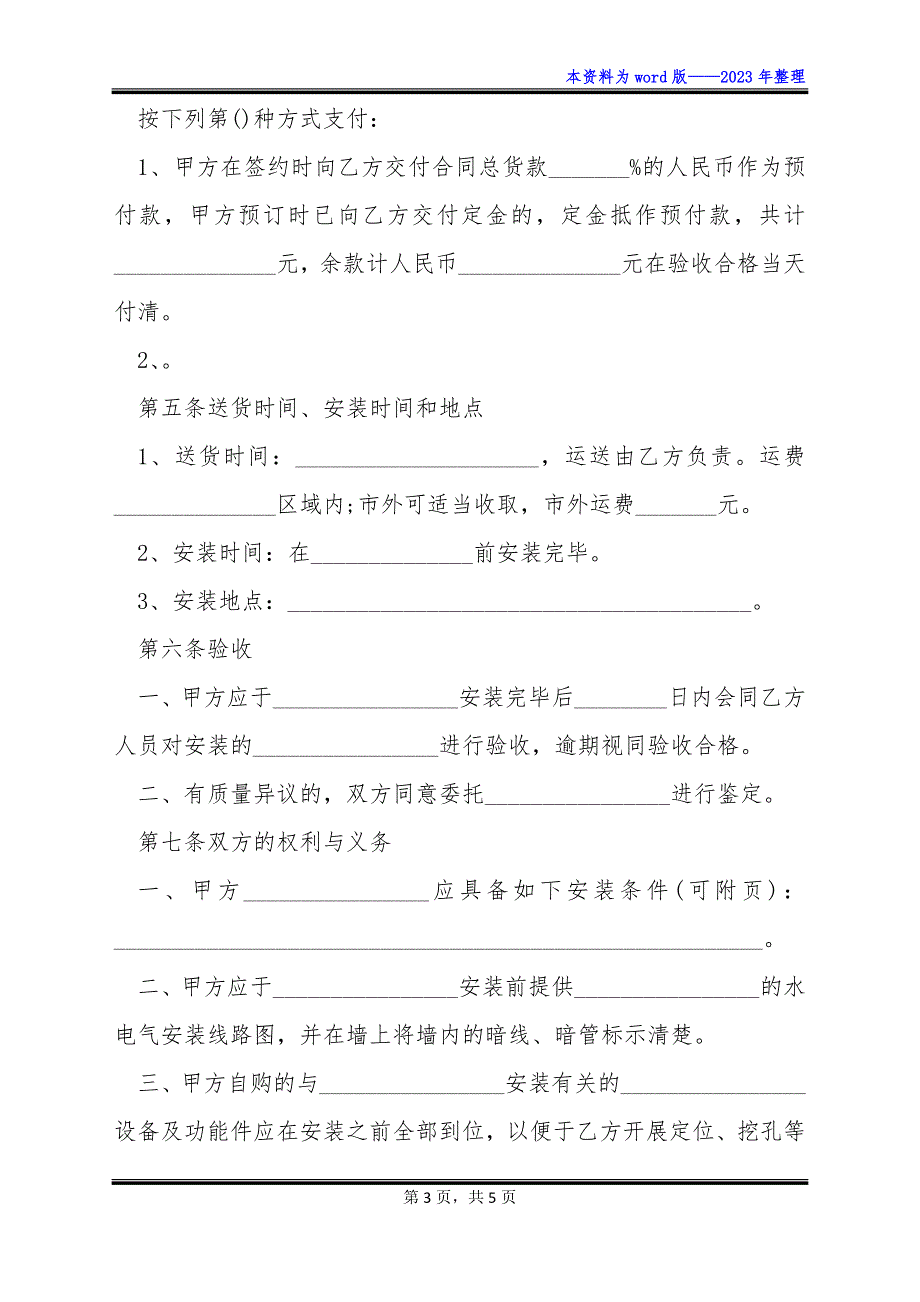 本资料为 word 版——2023 年整理
按下列第()种方式支付：
1、甲方在签约时向乙方交付合同总货款_______%的人民币作为预
付款，甲方预订时已向乙方交付定金的，定金抵作预付款，共计
______________元，余款计人民币______________元在验收合格当天
付清。
2、。
第五条送货时间、安装时间和地点
1、送货时间：_____________________，运送由乙方负责。运费
______________区域内;市外可适当收取，市外运费_______元。
2、安装时间：在______________前安装完毕。
3、安装地点：________________________________________。
第六条验收
一、甲方应于________________安装完毕后________日内会同乙方
人员对安装的________________进行验收，逾期视同验收合格。
二、有质量异议的，双方同意委托________________进行鉴定。
第七条双方的权利与义务
一、甲方________________应具备如下安装条件(可附页)：
________________________________________________________。
二、甲方应于________________安装前提供________________的水
电气安装线路图，并在墙上将墙内的暗线、暗管标示清楚。
三、甲方自购的与________________安装有关的________________
设备及功能件应在安装之前全部到位，以便于乙方开展定位、挖孔等
第 3 页，共 5 页